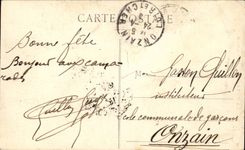 CARTE POSTALE
ONZAIN
LOIR-ET-CHER
24
Bonne fête
Bonjour aux cama
rades
Monsieur Gaston Guillon
instituteur
Ecole communale de garçons
Onzain